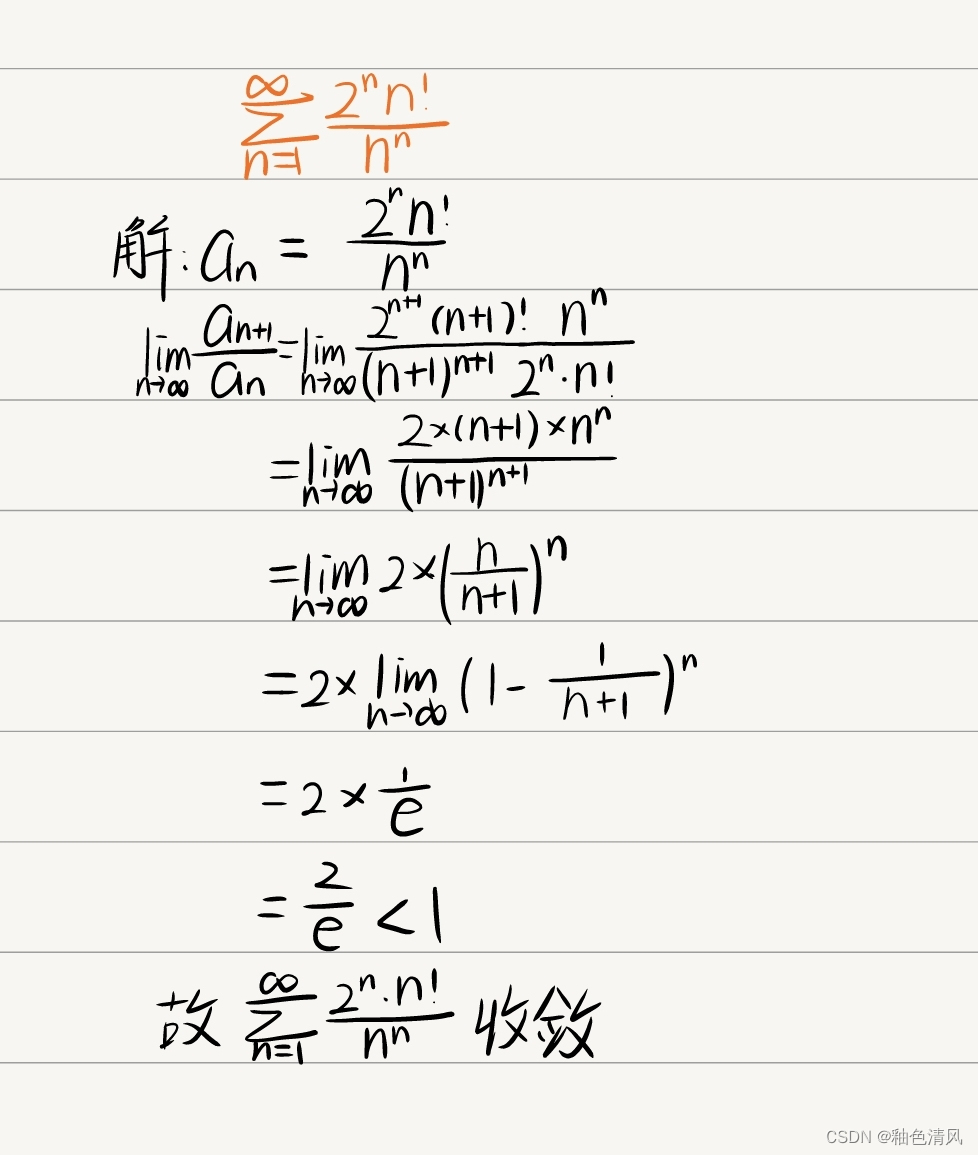 $\sum_{n=1}^{\infty} \frac{2^n n!}{n^n}$
解: $a_n = \frac{2^n n!}{n^n}$
$\lim_{n\to\infty} \frac{a_{n+1}}{a_n} = \lim_{n\to\infty} \frac{2^{n+1} (n+1)! \ n^n}{(n+1)^{n+1} \ 2^n \cdot n!}$
$= \lim_{n\to\infty} \frac{2 \times (n+1) \times n^n}{(n+1)^{n+1}}$
$= \lim_{n\to\infty} 2 \times \left(\frac{n}{n+1}\right)^n$
$= 2 \times \lim_{n\to\infty} \left(1 - \frac{1}{n+1}\right)^n$
$= 2 \times \frac{1}{e}$
$= \frac{2}{e} < 1$
故 $\sum_{n=1}^{\infty} \frac{2^n \cdot n!}{n^n}$ 收敛
CSDN @釉色清风